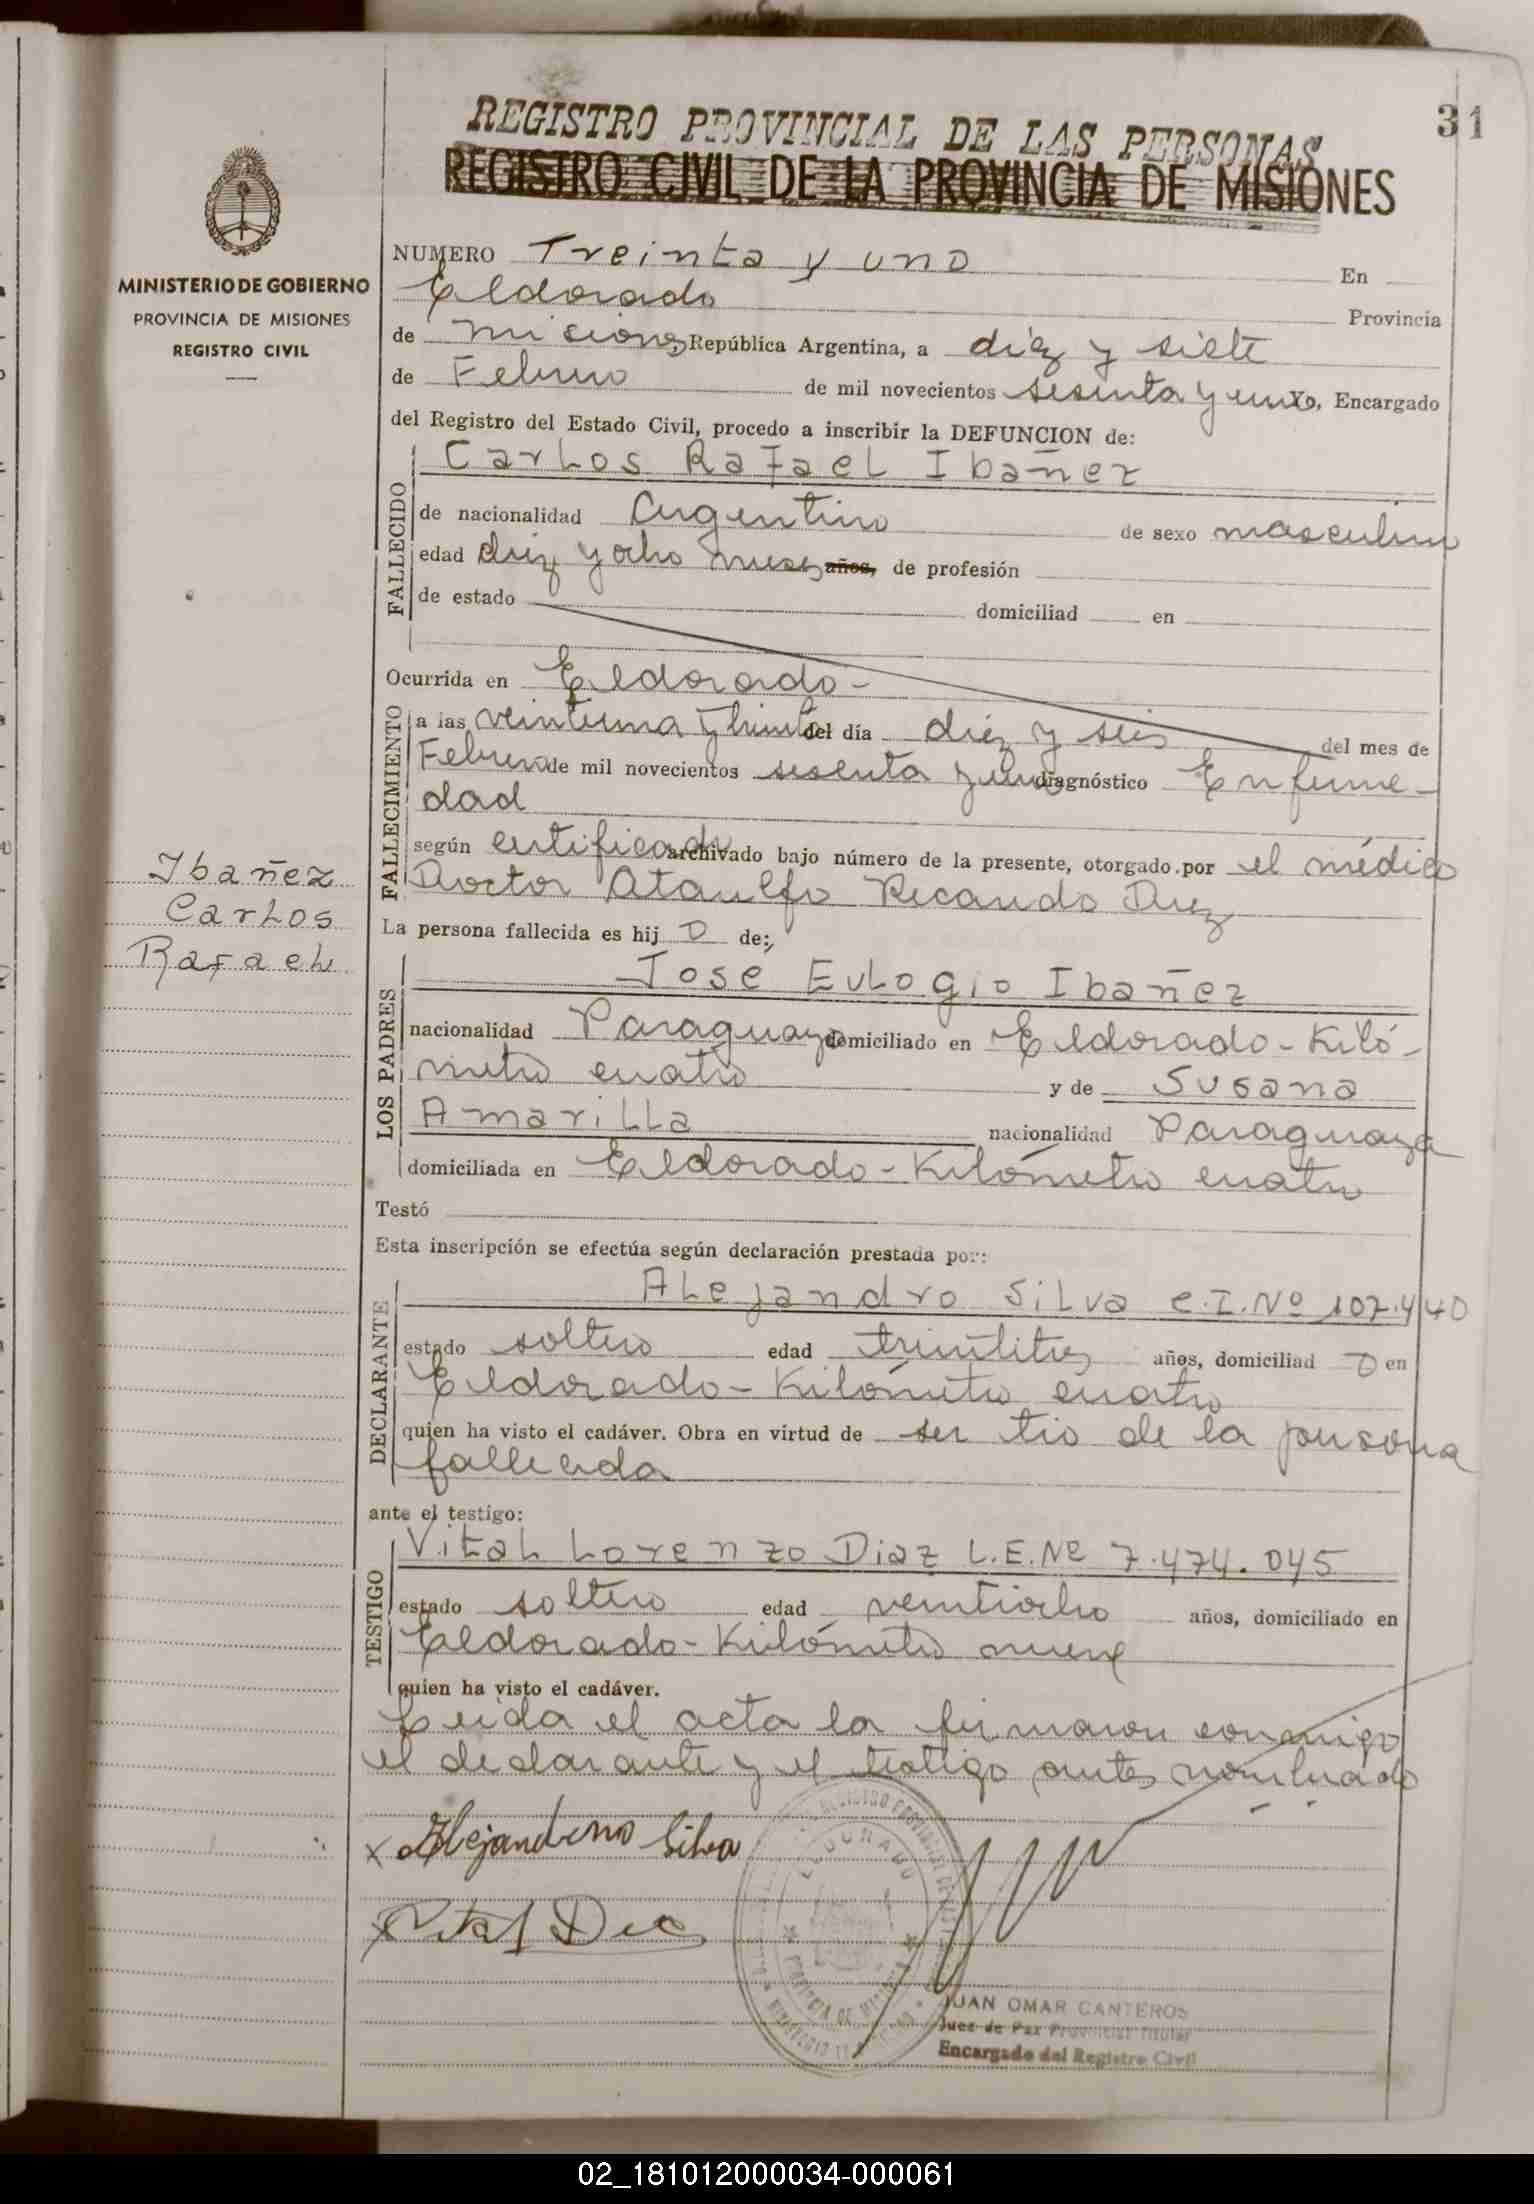 31
REGISTRO PROVINCIAL DE LAS PERSONAS
REGISTRO CIVIL DE LA PROVINCIA DE MISIONES
MINISTERIO DE GOBIERNO
PROVINCIA DE MISIONES
REGISTRO CIVIL
NUMERO Treinta y uno En
Eldorado Provincia
de Misiones República Argentina, a diez y siete
de Febrero de mil novecientos sesenta y uno, Encargado
del Registro del Estado Civil, procedo a inscribir la DEFUNCION de:
FALLECIDO
Carlos Rafael Ibañez
de nacionalidad Argentino de sexo masculino
edad diez y ocho meses años, de profesión
de estado domiciliad en
Ocurrida en Eldorado-
FALLECIMIENTO
a las veintiuna y treinta del día diez y seis del mes de
Febrero de mil novecientos sesenta y uno diagnóstico Enferme-
dad
según certificado archivado bajo número de la presente, otorgado por el médico
Doctor Ataulfo Ricardo Diez
Ibañez
Carlos
Rafael
La persona fallecida es hij o de:
LOS PADRES
José Eulogio Ibañez
nacionalidad Paraguayo domiciliado en Eldorado-Kiló-
metro cuatro y de Susana
Amarilla nacionalidad Paraguaya
domiciliada en Eldorado-Kilómetro cuatro
Testó
Esta inscripción se efectúa según declaración prestada por:
DECLARANTE
Alejandro Silva C.I.Nº 107.440
estado soltero edad treintitres años, domiciliad o en
Eldorado-Kilómetro cuatro
quien ha visto el cadáver. Obra en virtud de ser tio de la persona
fallecida
ante el testigo:
TESTIGO
Vital Lorenzo Diaz L.E.Nº 7.474.045
estado soltero edad veintiocho años, domiciliado en
Eldorado-Kilómetro nueve
quien ha visto el cadáver.
Leida el acta la firmaron conmigo
el declarante y el testigo antes nombrado
x Alejandrino Silva
x Vital Diaz
ELDORADO
PROVINCIA DE MISIONES
JUAN OMAR CANTEROS
Juez de Paz Provincial Titular
Encargado del Registro Civil
02_181012000034-000061